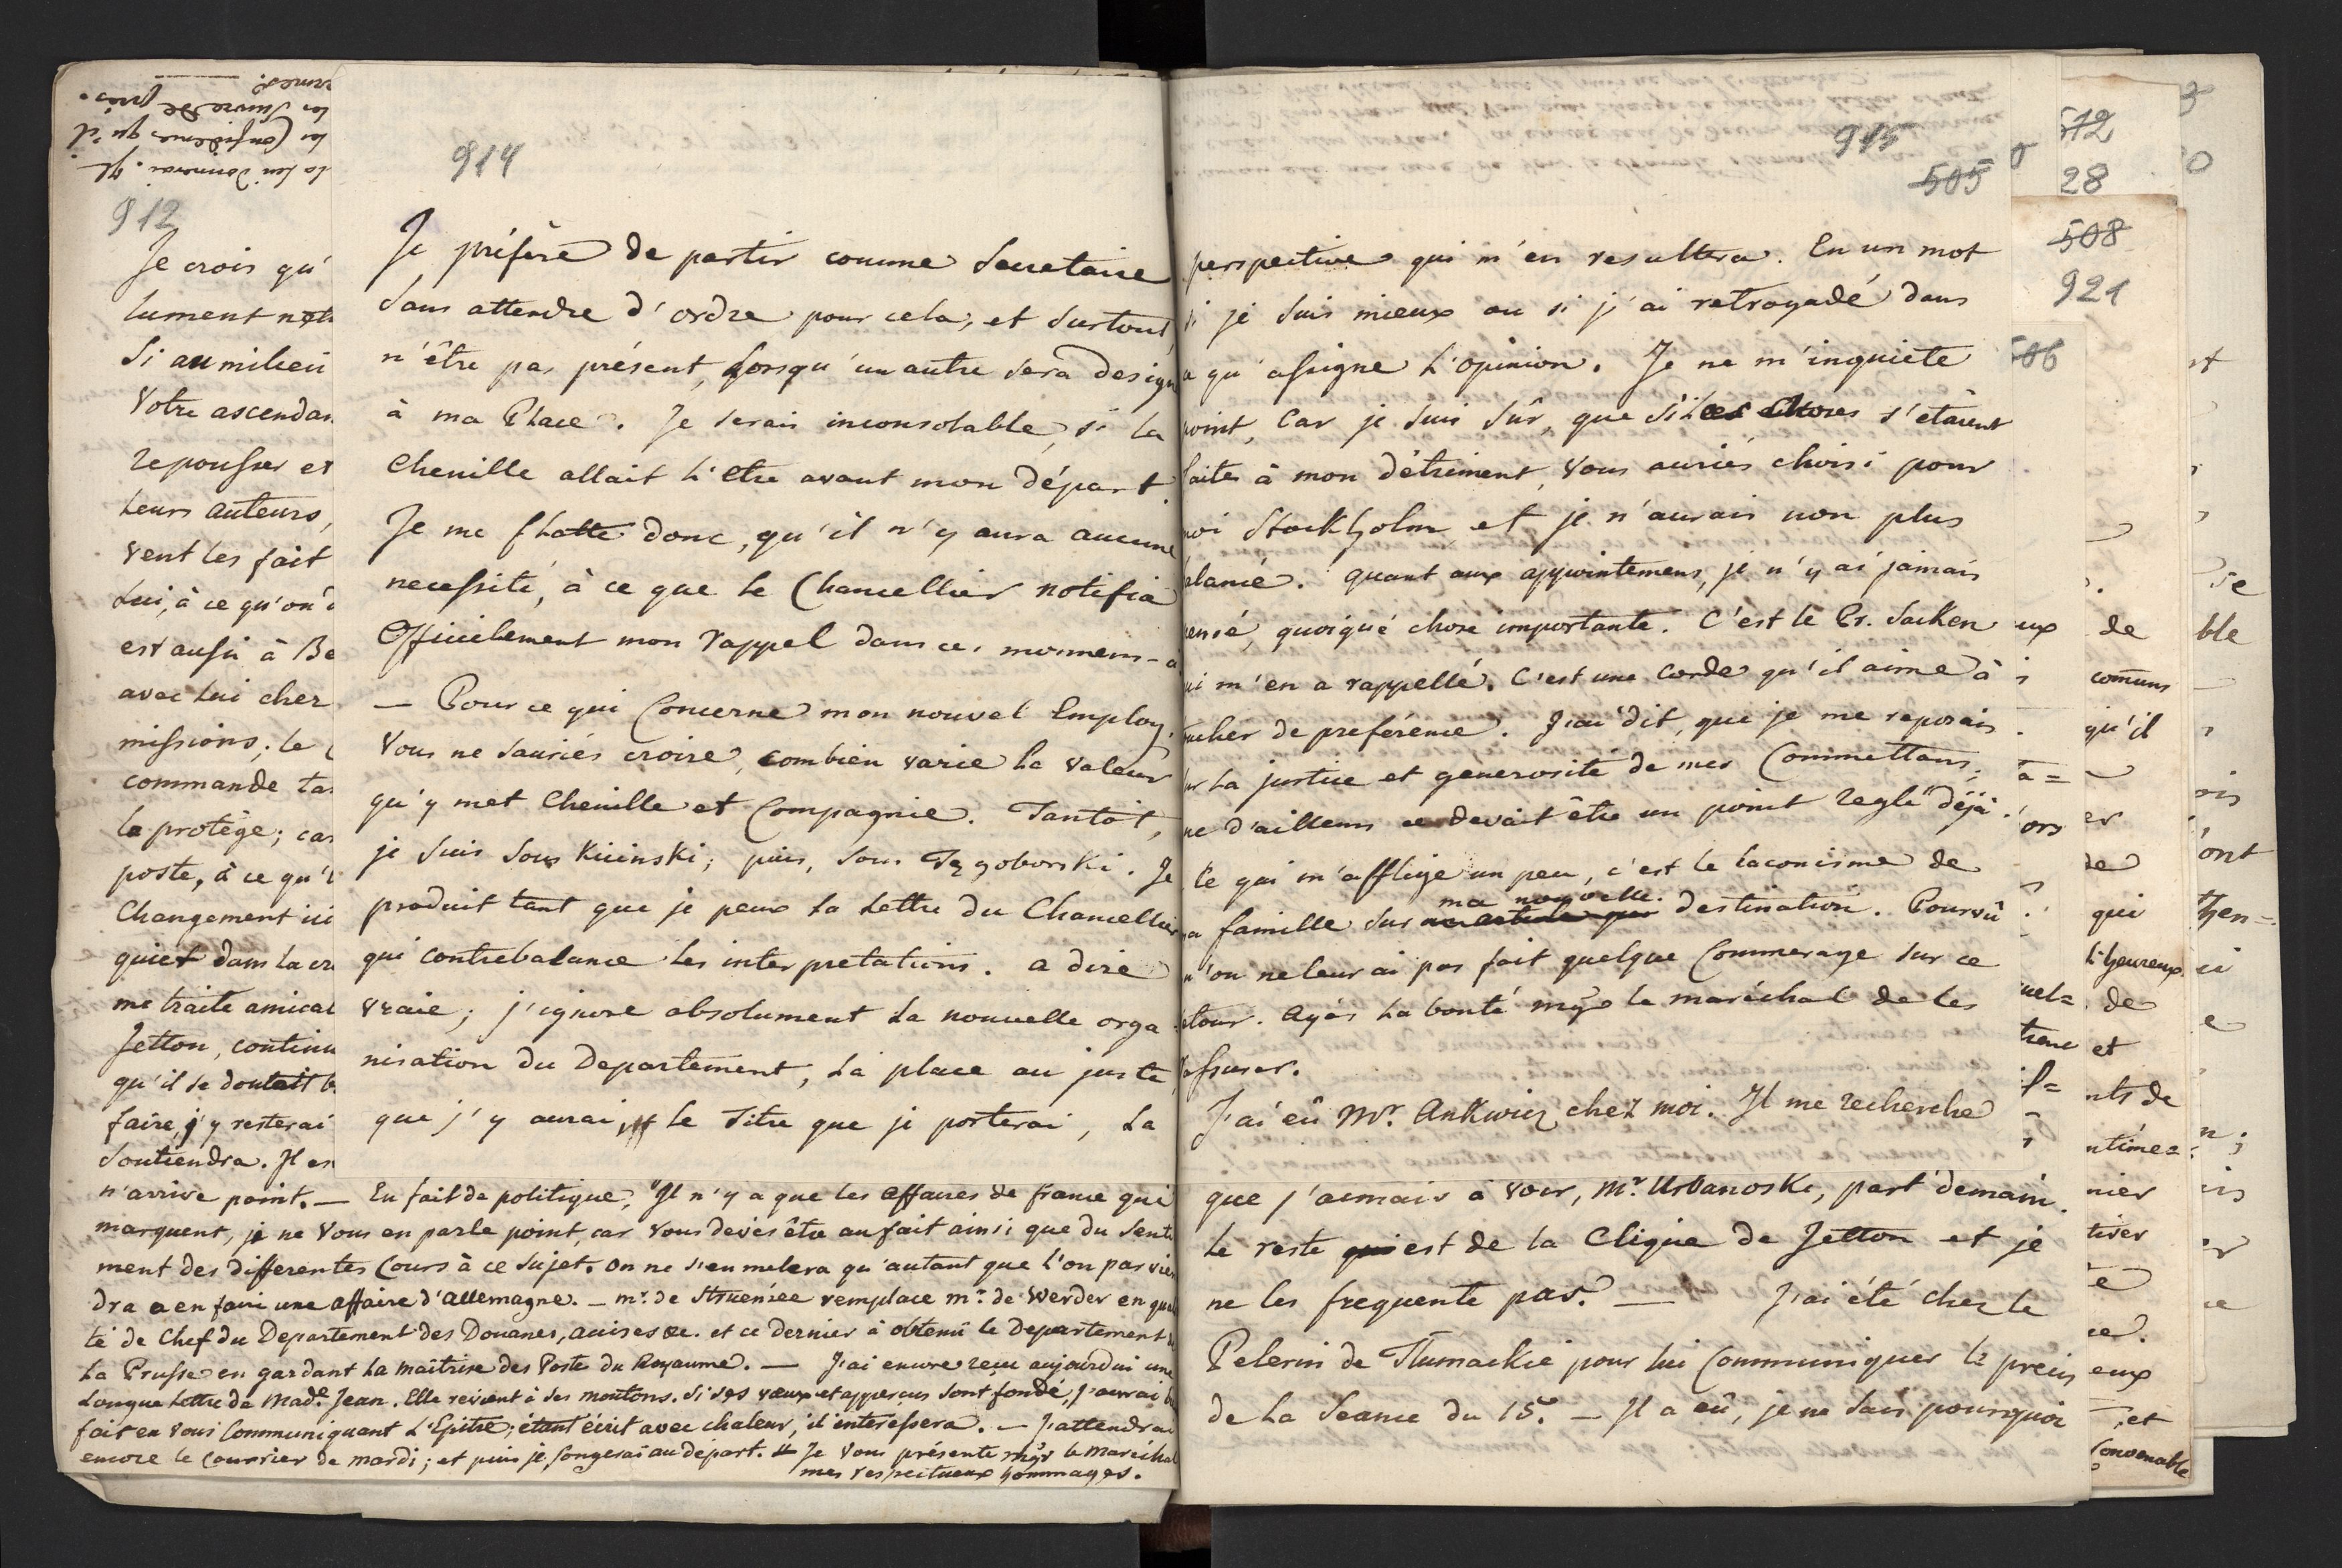 912
Je crois qu'
lument
Si au milieu
Votre ascendan
repousser et
leurs auteurs,
vent les fait
lui, à ce qu'on
est aussi à Be
avec lui cher
missions; le
commande ta
le protège; car
poste, à ce qu'
Changement ici
quiet dans la
me traite amical
Jetton, continu
qu'il se doutait
faire, j'y resterai
Soutiendra. Il en
n'arrive point. — En fait de politique, Il n'y a que les affaires de france qui
marquent, je ne Vous en parle point, car Vous devés être au fait ainsi que du Senti
ment des differentes Cours à ce Sujet. On ne s'en melera qu'autant que l'on parvien
dra a en faire une affaire d'allemagne. — mr. de Struensée remplace mr. de Werder en quali
té de Chef du Departement des Douanes, acises &c. et ce dernier à obtenû le Departement
La Prusse en gardant la maîtrise des Poste du Royaume. — J'ai encore reçu aujourdui une
Longue Lettre de Made. Jean. Elle revient à ses moutons. Si ses vœux et apperçus sont fondé, j'aurai
fait en vous Communiquant L'Epitre; étant écrit avec chaleur, il interessera. — J'attendrai
encore le Courrier de mardi; et puis je songerai au départ. Je Vous présente mgr le maréchal
mes respectueux hommages.
914
Je préfère de partir comme Secretaire
Sans attendre d'ordre pour cela, et Surtout,
n'être pas présent, lorsqu'un autre sera design
à ma Place. Je serais inconsolable, si la
Chenille allait l'etre avant mon départ.
Je me flatte donc, qu'il n'y aura aucune
necessité, à ce que le Chancellier notifia
Officielement mon rappel dans ces momens-
— Pour ce qui Concerne mon nouvel Employ,
Vous ne sauriés croire, combien varie la valeur
qu'y met Chenille et Compagnie. Tantôt,
je suis sous Kicinski; puis, sous Tęgoborski. Je
produit tant que je peux la Lettre du Chancellier
qui contrebalance les interpretations. a dire
vraie; j'ignore absolument la nouvelle orga
nisation du Departement, la place au juste
que j'y aurai, le Titre que je porterai, la
915
505
perspective qui m'en resultera. En un mot
si je suis mieux ou si j'ai retrogadé dans
qu'assigne L'opinion. Je ne m'inquiete
point, Car je suis sûr, que si les choses s'etaient
faites à mon détriment, vous auriés choisi pour
moi Stockholm, et je n'aurais non plus
balancé. quant aux appointemens, je n'y ai jamais
pensé, quoique chose importante. C'est le Pr. Sacken
qui m'en a rappellé. C'est une corde qu'il aime à
toucher de preférence. J'ai dit, que je me reposais
sur la justice et generosité de mes Commettans,
que d'ailleurs ce devait être un point reglé déjà.
Ce qui m'afflige un peu, c'est le laconisme de
ma famille sur ma nouvelle destination. Pourvû
qu'on ne leur ai pas fait quelque Commerage sur ce
retour. Ayés la bonté mgr le maréchal de les
rassurer.
J'ai eû Mr. Ankwicz chez moi. Il me recherche
que j'aimais à voir, Mr. Urbanoski, part demain.
Le reste est de la Clique de Jetton et je
ne les frequente pas. — J'ai été chez le
Pelerin de Tlumackie pour lui Communiquer le precis
de la Seance du 15. — Il a eû, je ne sais pourquoi
506
508
921
512
28
de
comuns
qu'il
er
de
qui
l'heureux
de
et
nts de
ntimes
nier
tiver
eux
et
Convenable
ble
ont
then=